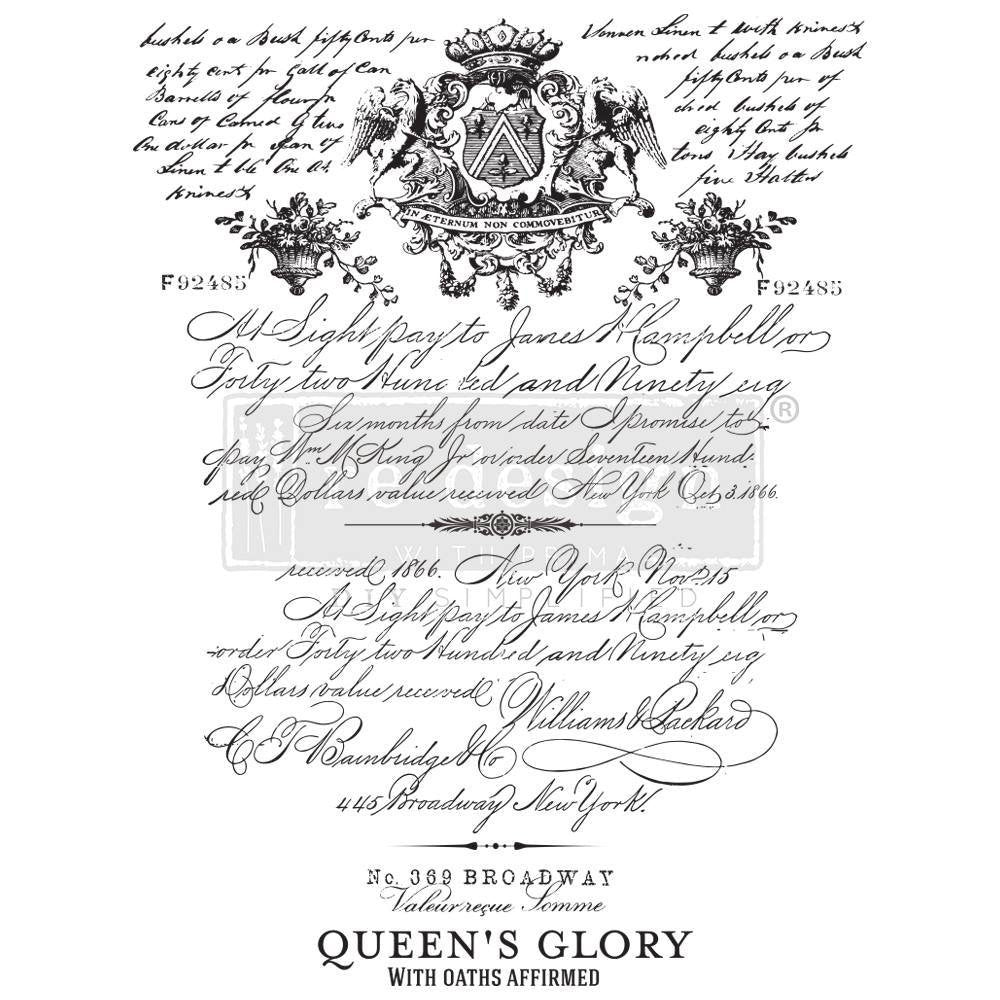 bushels oa Bush fifty Cents per
eighty cent pr Gall of Can
Barrells of flour pr
Cans of Carned G two
One dollar pr of an of
Linen t ble One At
Knines t
Linen t with Knines t
bushels oa Bush
fifty Cents per of
dred bushels of
eighty Cents pr
tons Hay bushels
five Halter
IN ÆTERNUM NON COMMOVEBITUR
F92485
F92485
At Sight pay to James W Campbell or
Forty two Hundred and Ninety eig
Six months from date I promise to
pay Wm McKing Jr or order Seventeen Hund.
red Dollars value received New York Oct 3. 1866.
re·design
WITH PRIMA
®
DIY SIMPLIFIED
received 1866. New York Nov. 15
At Sight pay to James W Campbell or
order Forty two Hundred and Ninety eig
Dollars value received
Williams & Packard
C T Bainbridge & Co
445 Broadway New York.
No. 369 BROADWAY
Valeur reçue Somme
QUEEN'S GLORY
WITH OATHS AFFIRMED